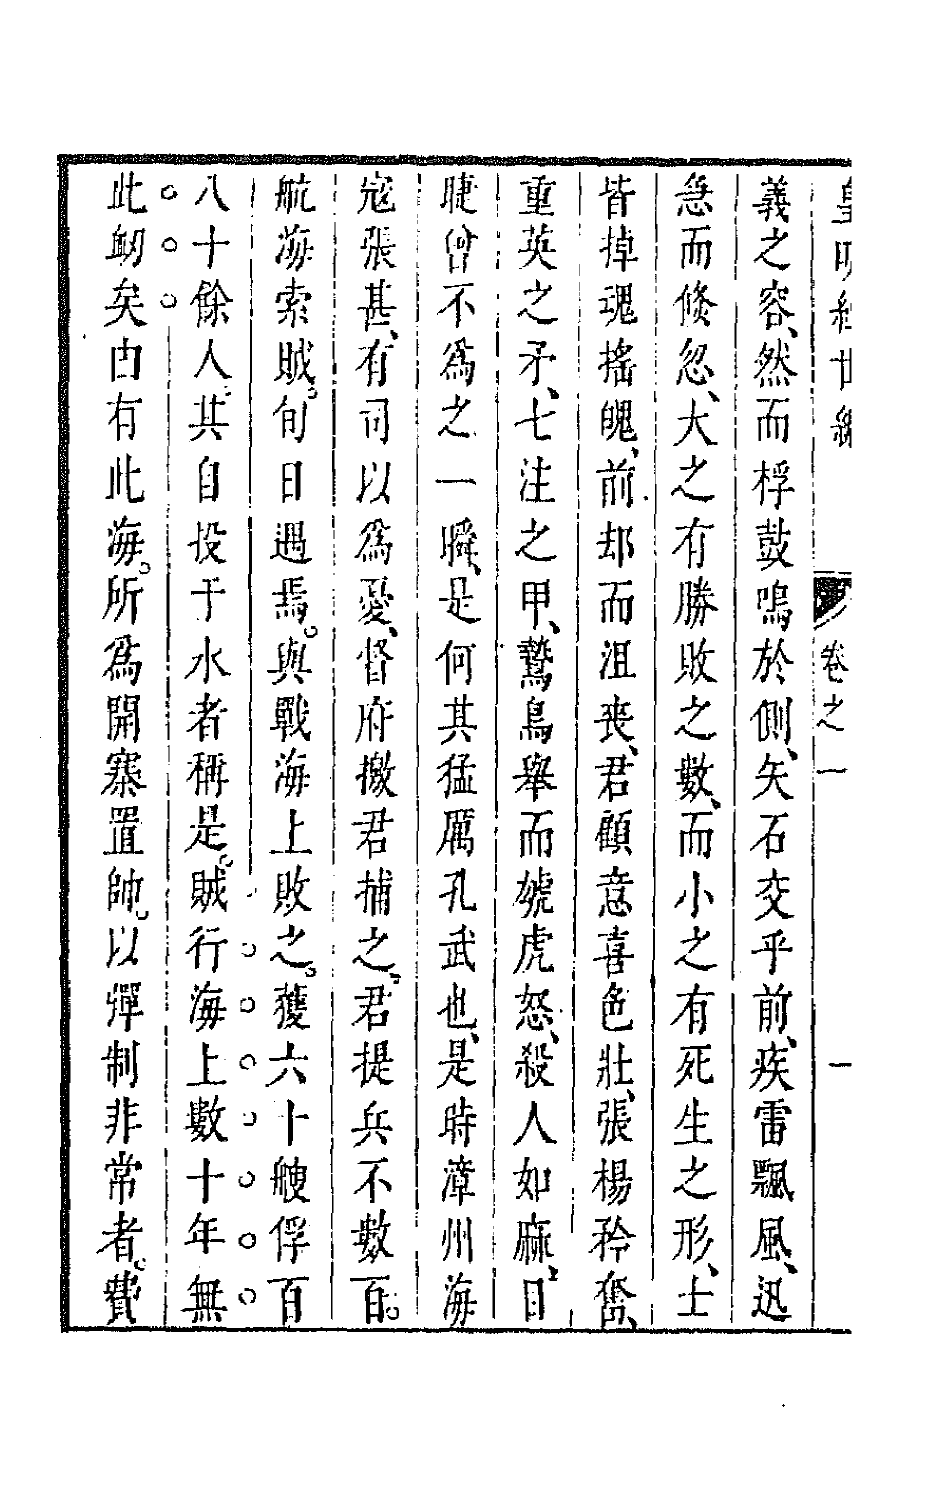 皇明經世編 卷之一 一
義之容、然而桴鼓鳴於側、矢石交乎前、疾雷飄風、迅
急而倐忽、大之有勝敗之數、而小之有死生之形、士
皆掉魂搖魄、前却而沮丧、君顧意喜色壯、張楊矜奮、
重英之矛、七注之甲、鷙鳥舉而虓虎怒、殺人如麻、目
睫曾不爲之一瞬、是何其猛厲孔武也、是時漳州海
宼張甚、有司以爲憂、督府檄君捕之。君提兵不數百。
航海索賊。旬日遇焉。與戰海上敗之。獲六十艘俘百
八十餘人。其自投于水者稱是。賊行海上數十年無
此衂矣由有此海。所爲開寨置帥。以彈制非常者。費